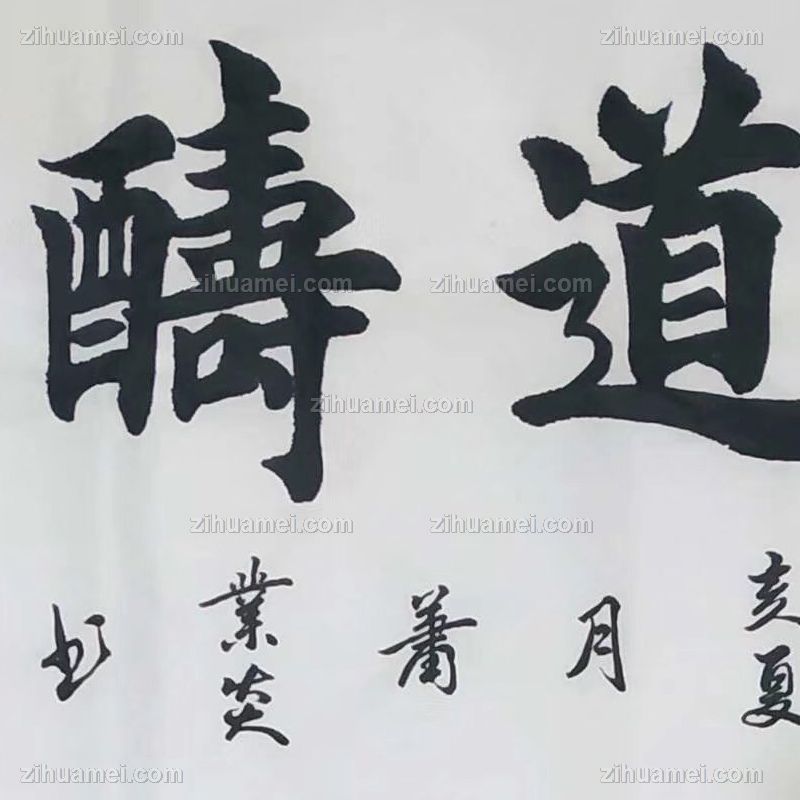 道醻
亥夏
月
蕭
業炎
书
zihuamei.com zihuamei.com
zihuamei.com zihuamei.com
zihuamei.com
zihuamei.com zihuamei.com
zihuamei.com zihuamei.com